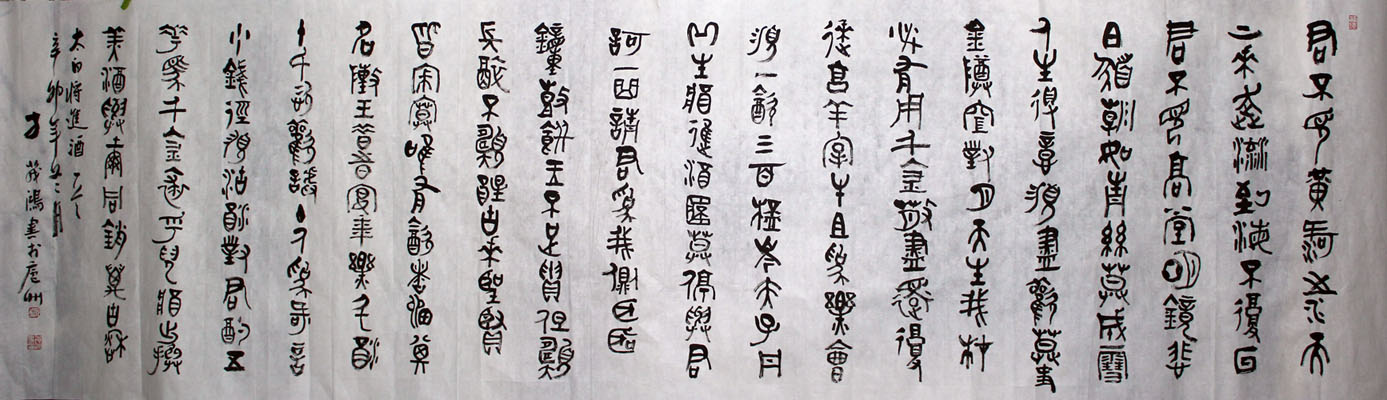 君不見黃河之水天
上來奔流到海不復回
君不見高堂明鏡悲
白髮朝如青絲暮成雪
人生得意須盡歡莫使
金樽空對月天生我材
必有用千金散盡還復
來烹羊宰牛且為樂會
須一飲三百杯岑夫子丹
丘生將進酒杯莫停與君
歌一曲請君為我側耳聽
鐘鼓饌玉不足貴但願
長醉不願醒古來聖賢
皆寂寞唯有飲者留其
名陳王昔時宴平樂斗酒
十千恣歡謔主人為何言
少錢徑須沽取對君酌五
花馬千金裘呼兒將出換
美酒與爾同銷萬古愁
太白將進酒
辛卯年五月
方茂鴻書於廣州